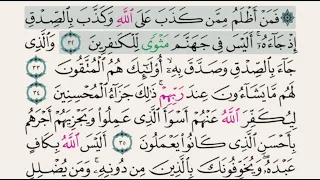 ۞ فَمَنْ أَظْلَمُ مِمَّن كَذَبَ عَلَى ٱللَّهِ وَكَذَّبَ بِٱلصِّدْقِ
إِذْ جَآءَهُۥٓ ۚ أَلَيْسَ فِى جَهَنَّمَ مَثْوًى لِّلْكَـٰفِرِينَ ٣٢ وَٱلَّذِى
جَآءَ بِٱلصِّدْقِ وَصَدَّقَ بِهِۦٓ ۙ أُو۟لَـٰٓئِكَ هُمُ ٱلْمُتَّقُونَ ٣٣
لَهُم مَّا يَشَآءُونَ عِندَ رَبِّهِمْ ۚ ذَٰلِكَ جَزَآءُ ٱلْمُحْسِنِينَ ٣٤
لِيُكَفِّرَ ٱللَّهُ عَنْهُمْ أَسْوَأَ ٱلَّذِى عَمِلُوا۟ وَيَجْزِيَهُمْ أَجْرَهُم
بِأَحْسَنِ ٱلَّذِى كَانُوا۟ يَعْمَلُونَ ٣٥ أَلَيْسَ ٱللَّهُ بِكَافٍ
عَبْدَهُۥ ۖ وَيُخَوِّفُونَكَ بِٱلَّذِينَ مِن دُونِهِۦ ۚ وَمَن يُضْلِلِ